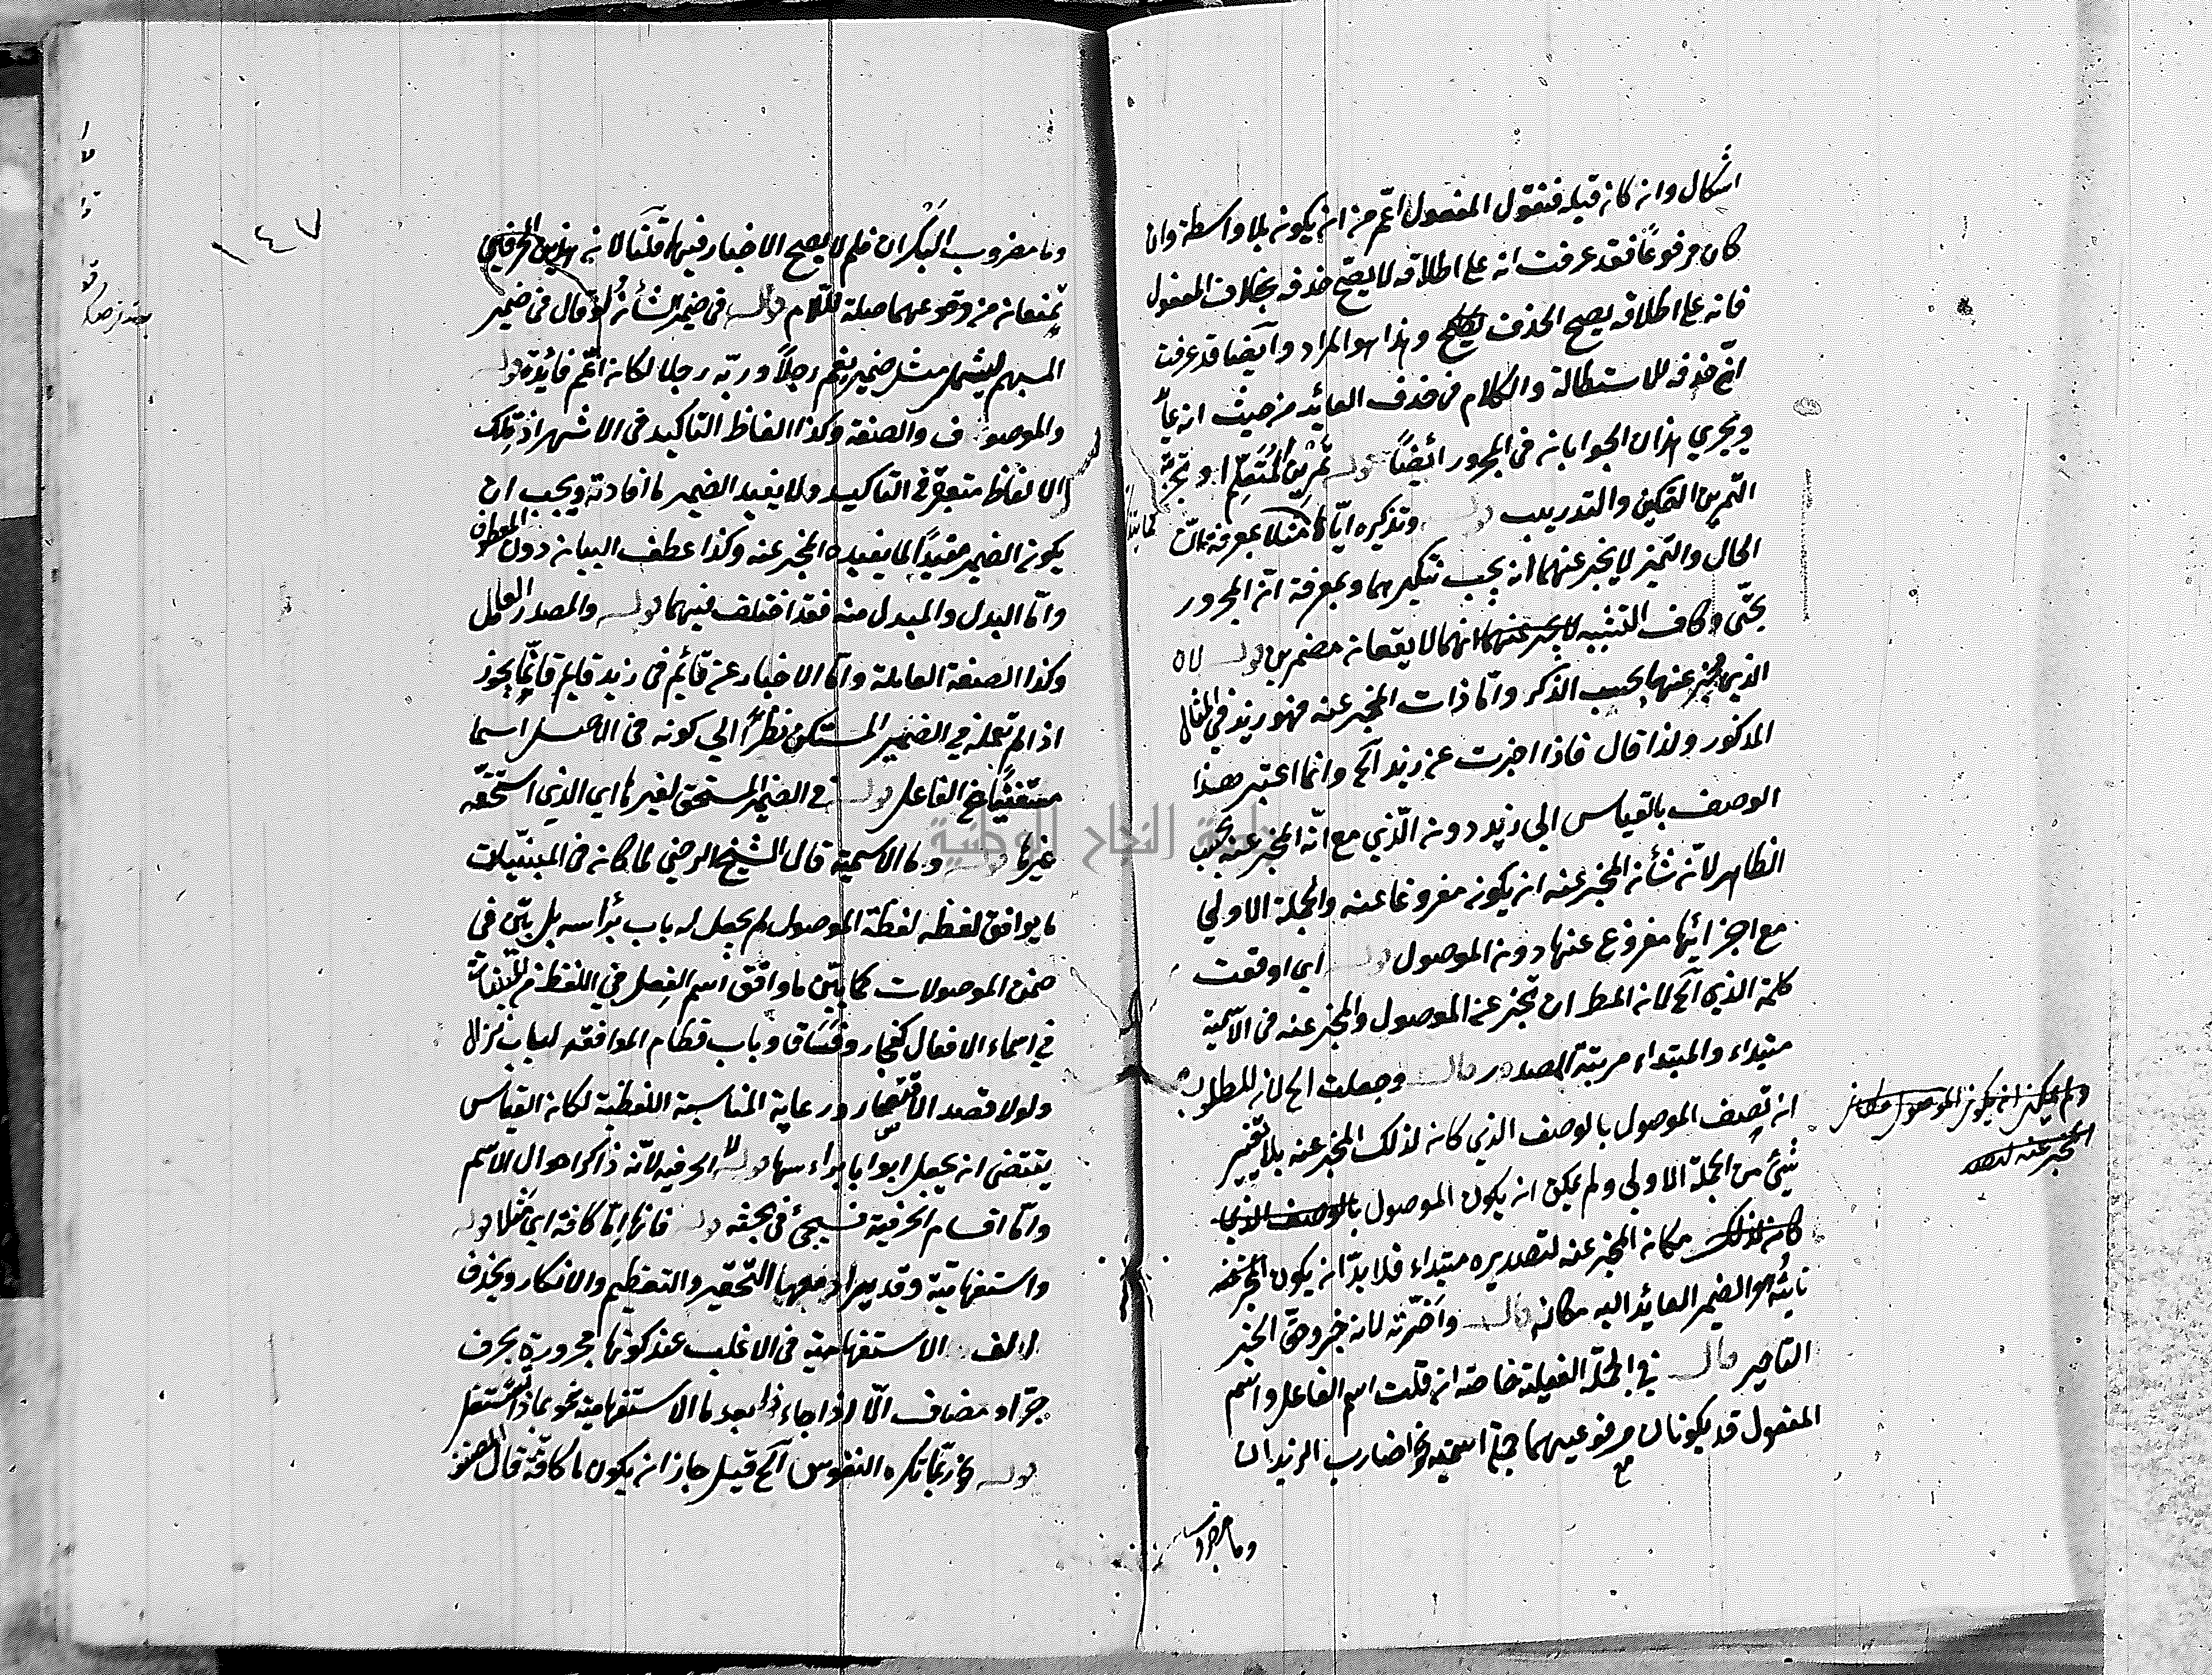 اشكال وان كان قبله فنقول المفعول اعم من ان يكون بلا واسطة وانا
كان مرفوعا فقد عرفت انه على اطلاقه لا يصح حذفه بخلاف المفعول
فانه على اطلاقه يصح الحذف وهذا هو المراد وايضا قد عرفت
ان حذفه للاستطالة والكلام في حذف العائد من حيث انه عا
ويجري هذان الجوابان في المجرور ايضًا قوله تمرين المتعلم او تجربة
التمرين التمكين والتدريب قوله وتذكيره اياها مثلا بمعرفة ان
الحال والتميز لا يخبر عنهما انه يجب تنكيرهما وبمعرفة ان المجرور
بحتى وكاف التشبيه لا يخبر عنهما انهما لا يقعان مضمرين قوله لان
الذي يخبر عنها بحسب الذكر واما ذات المخبر عنه فهو زيد في المثال
المذكور ولذا قال فاذا اخبرت عن زيد آلخ وانما اعتبر هذا
الوصف بالقياس الي زيد دون الذي مع انه المخبر عنه بحسب
الظاهر لان شأن المخبر عنه ان يكون مفروغا عنه والجملة الاولي
مع اجزائها مفروغ عنها دون الموصول قوله اي اوقعت
كلمة الذي آلخ لان المط ان تخبر عن الموصول والمخبر عنه في الاسمية
مبتداء والمبتداء مرتبة الصدر قال وجعلت الخ لان المطلوب
ان تصف الموصول بالوصف الذي كان لذلك المخبر عنه بلا تغيير
شيئ من الجملة الاولي ولم يمكن ان يكون الموصول بالوصف الذي
كان لذلك مكان المخبر عنه لتصديره مبتداء فلا بد ان يكون المخبر عنه
نائبه هو الضمير العائد اليه مكانه قال واخرته لانه خبر وحق الخبر
التاخير قال في الجملة الفعلية خاصة ان قلت اسم الفاعل واسم
المفعول قد يكونان مع مرفوعيهما جملة اسمية نحو اضارب الزيدان
وما مضروب
ولم يمكن ان يكون الموصول مكان
المخبر عنه لتصد
١٤٧
وما مضروب البكران فلم لا يصح الاخبار فيها قلنا لان هذين الحرفين
يمنعان من وقوعهما صلة للام قوله في ضمير الشأن لو قال في ضمير
المبهم ليشمل مثل ضمير نعم رجلاً وربه رجلا لكان اعم فائدة قوله
والموصوف والصفة وكذا الفاظ التاكيد في الاشهر اذ تلك
الالفاظ متبعة في التاكيد ولا يفيد الضمير ما افادته ويجب ان
يكون الضمير مفيدًا لما يفيده المخبر عنه وكذا عطف البيان دون المعطوف
واما البدل والمبدل منه فقد اختلف فيهما قوله والمصدر العامل
وكذا الصفة العاملة واما الاخبار عن قائم في زيد قائم فانما يجوز
اذا لم تعمله في الضمير المستكن نظرًا الي كونه في الاصل اسما
مستغنيا عن الفاعل قوله في الضمير المستحق لغيرها اي الذي استحقه
غيرها قوله وما الاسمية قال الشيخ الرضي لما كان في المبنيات
ما يوافق لفظه لفظة الموصول لم يجعل له باب برأسه بل بين في
ضمن الموصولات كما بين ما وافق اسم الفعل في اللفظ
في اسماء الافعال كفجار وفساق وباب قطام الموافقة لباب نزال
ولولا قصد الاختصار ورعاية المناسبة اللفظية لكان القياس
يقتضى ان يجعل ابوابا براءسها قوله لا الحرفية لانه ذاكر احوال الاسم
واما اقسام الحرفية فسيجئ في بحثه قوله فانها اما كافة اي مثلا قوله
واستفهامية وقد يراد معها التحقير والتعظيم والانكار ويحذف
الف الاستفهامية في الاغلب عند كونها مجرورة بحرف
جر او مضاف الا اذا جاء ذا بعد ما الاستفهامية نحو بماذا تشتغل
قوله نحو ربما تكره النفوس آلخ قيل جاز ان يكون ما كافة قال المصنف